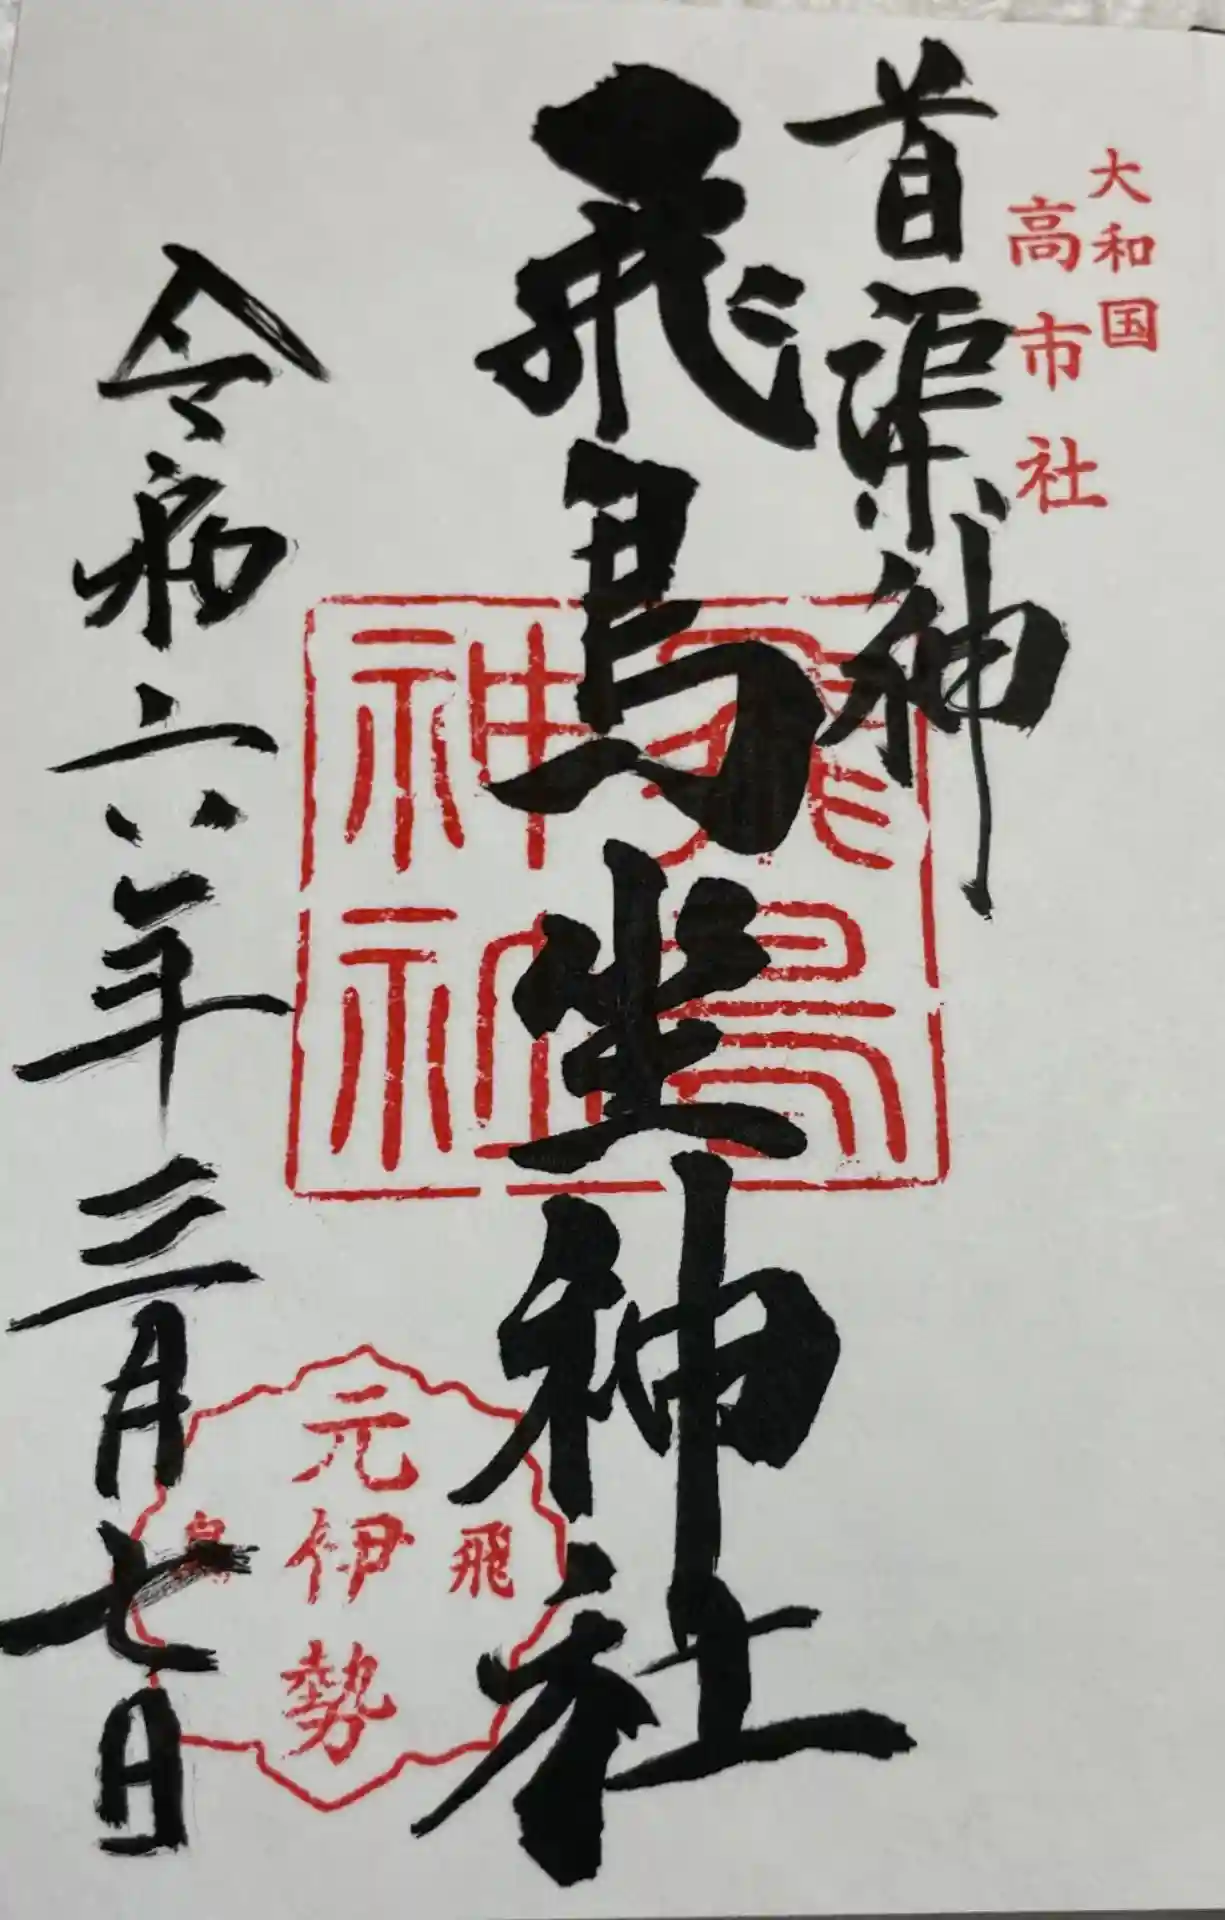 大和国
高市社
首渠神
飛鳥坐神社
飛鳥
神社
飛
元伊勢
鳥
令和六年三月七日